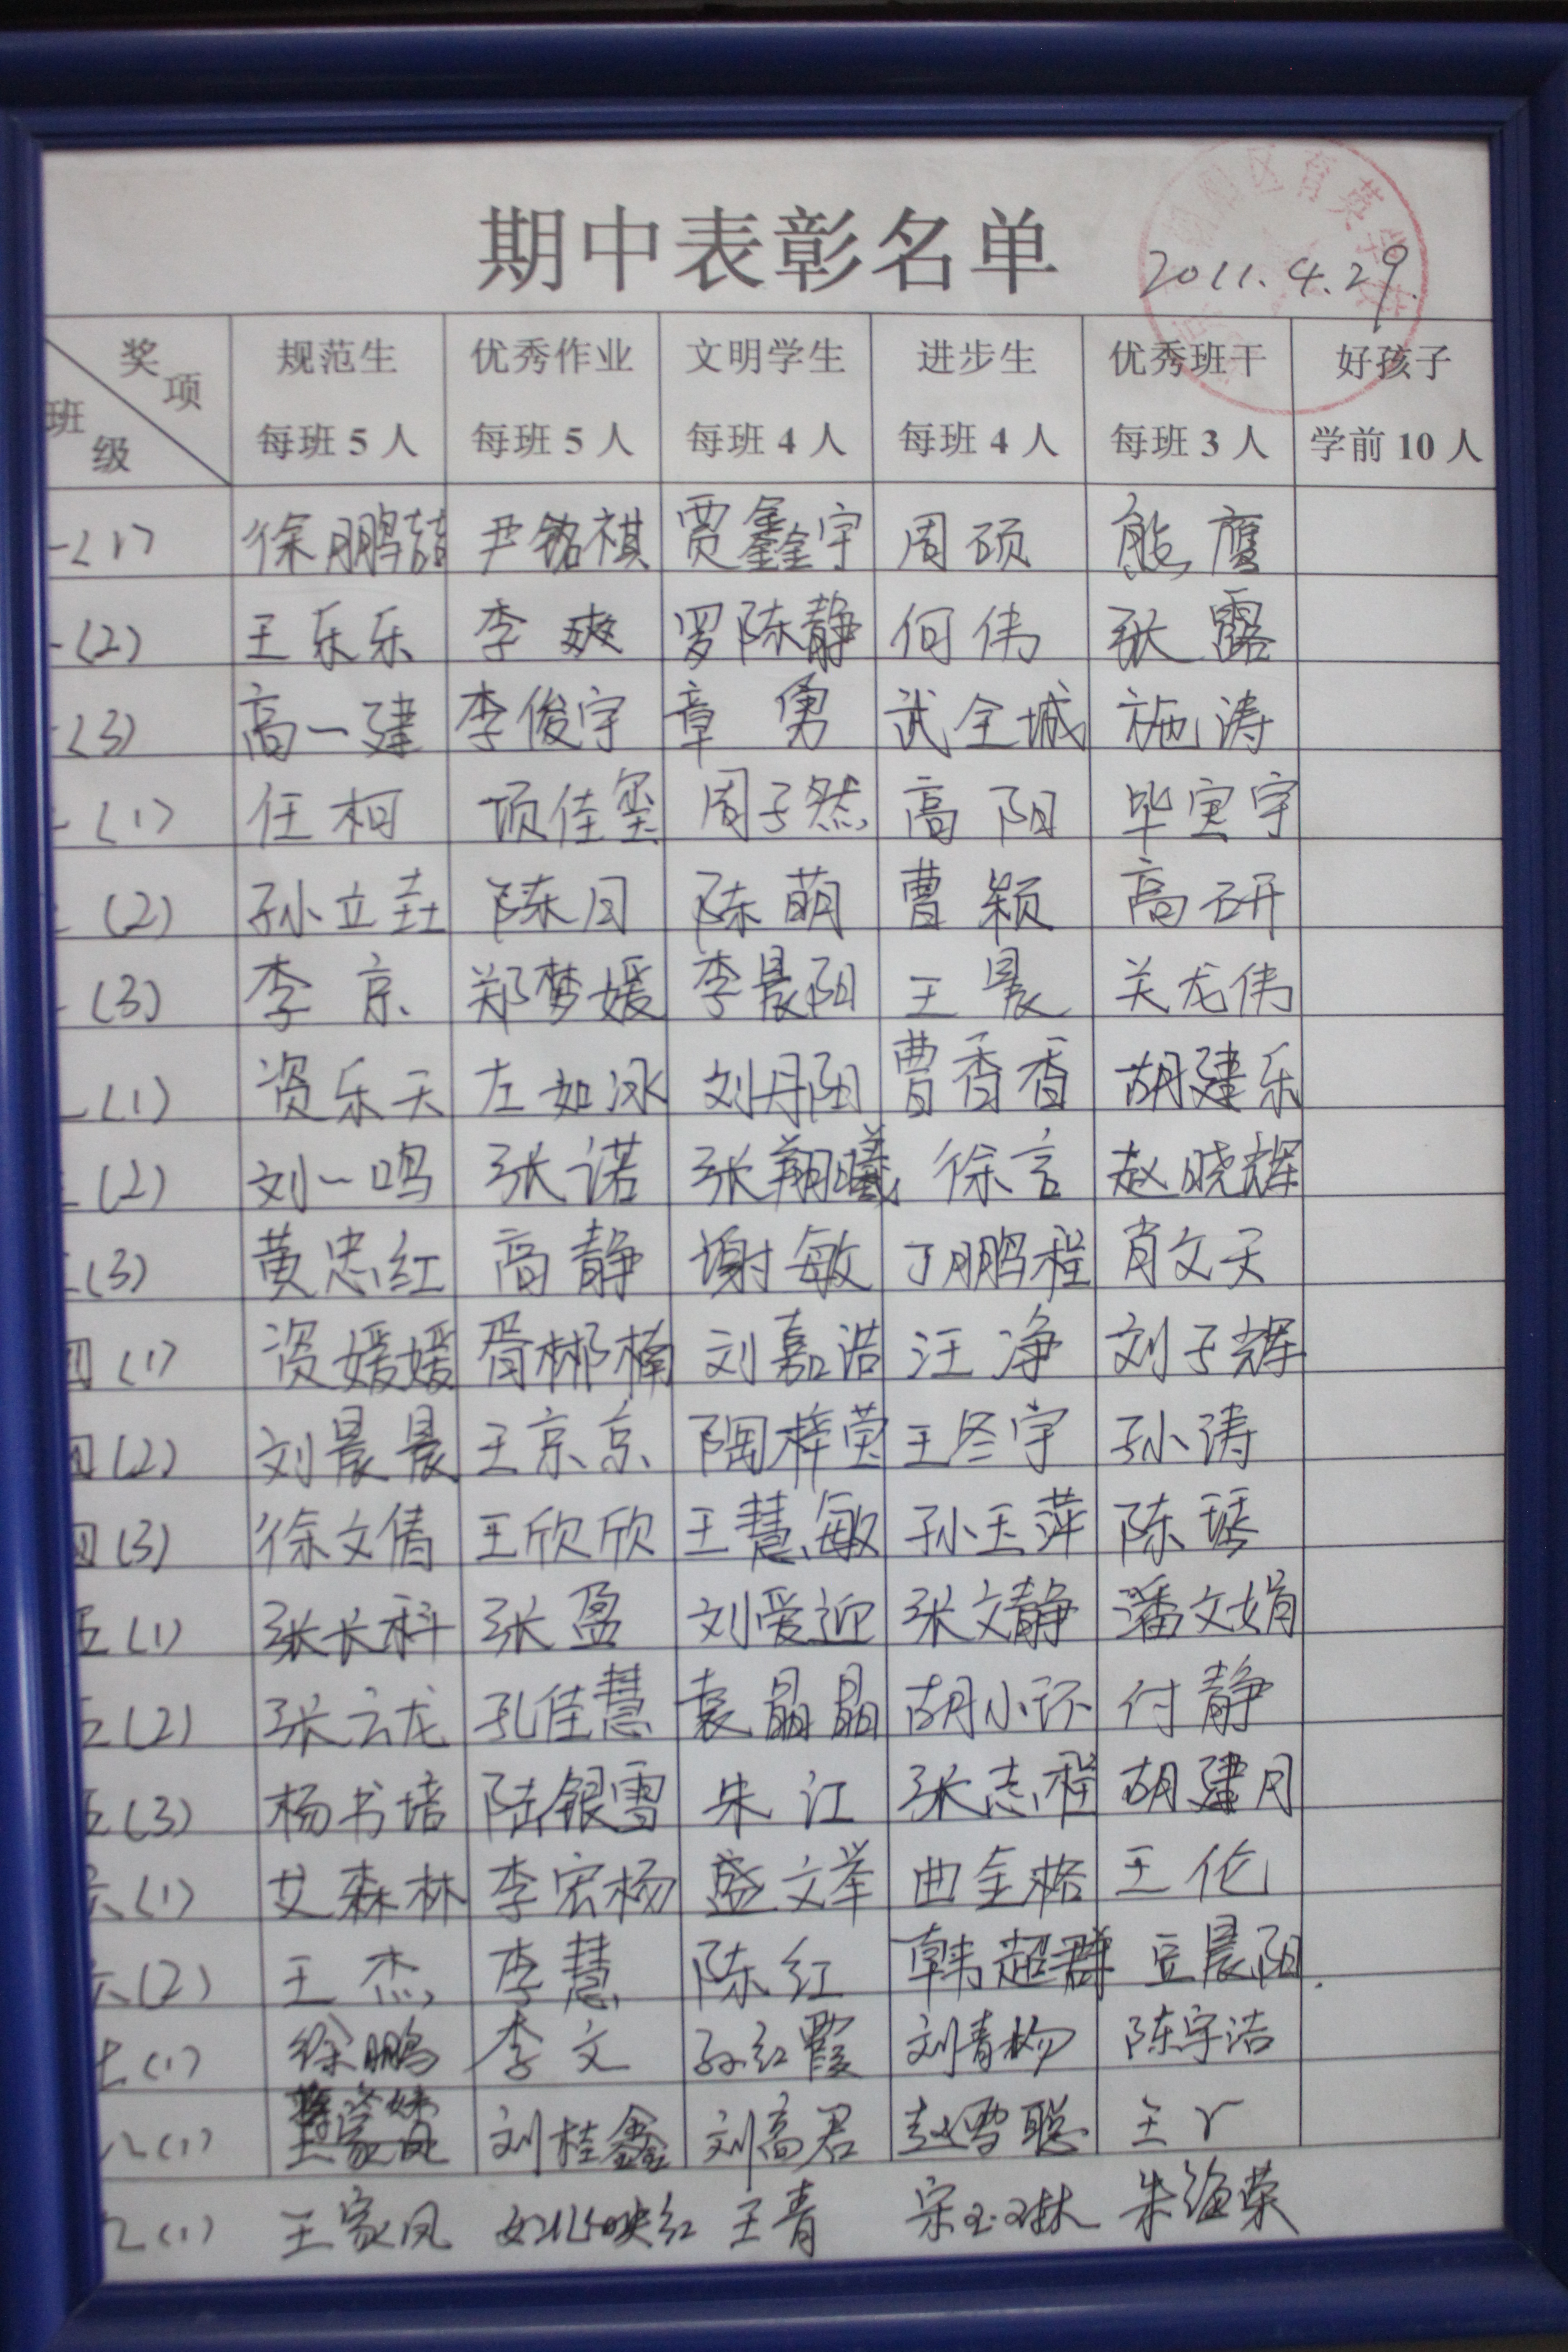 期中表彰名单
2011.4.29.
奖项 规范生 优秀作业 文明学生 进步生 优秀班干 好孩子
班级 每班5人 每班5人 每班4人 每班4人 每班3人 学前10人
一(1) 徐鹏喆 尹铭祺 贾鑫宇 周硕 熊鹰
(2) 王乐乐 李爽 罗陈静 何伟 张露
(3) 高一建 李俊宇 章勇 武全城 施涛
(1) 任柯 项佳玺 周子然 高阳 毕寅宇
(2) 孙立垚 陈月 陈萌 曹颖 高研
(3) 李京 郑梦媛 李晨阳 王晨 关龙伟
(1) 资乐天 左如冰 刘丹阳 曹香香 胡建乐
(2) 刘一鸣 张诺 张翔曦 徐言 赵晓辉
(3) 黄忠红 高静 谢敏 丁鹏程 肖文天
四(1) 资媛媛 胥郴楠 刘嘉浩 汪净 刘子辉
四(2) 刘晨晨 王京京 陶梓莹 王冬宇 孙涛
四(3) 徐文倩 王欣欣 王慧敏 孙玉萍 陈琇
五(1) 张长科 张盈 刘爱迎 张文静 潘文娟
五(2) 张云龙 孔佳慧 袁晶晶 胡小环 付静
五(3) 杨书培 陆银雪 朱江 张志程 胡建月
六(1) 艾森林 李宏杨 盛文举 曲金格 王伦
六(2) 王杰 李慧 陈红 韩超群 豆晨阳.
七(1) 徐鹏 李文 孙红霞 刘青杨 陈宇洁
八(1) 刘桂鑫 刘高君 赵雪聪 王丫
九(1) 王家凤 映红 王青 宋玉琳 朱海荣